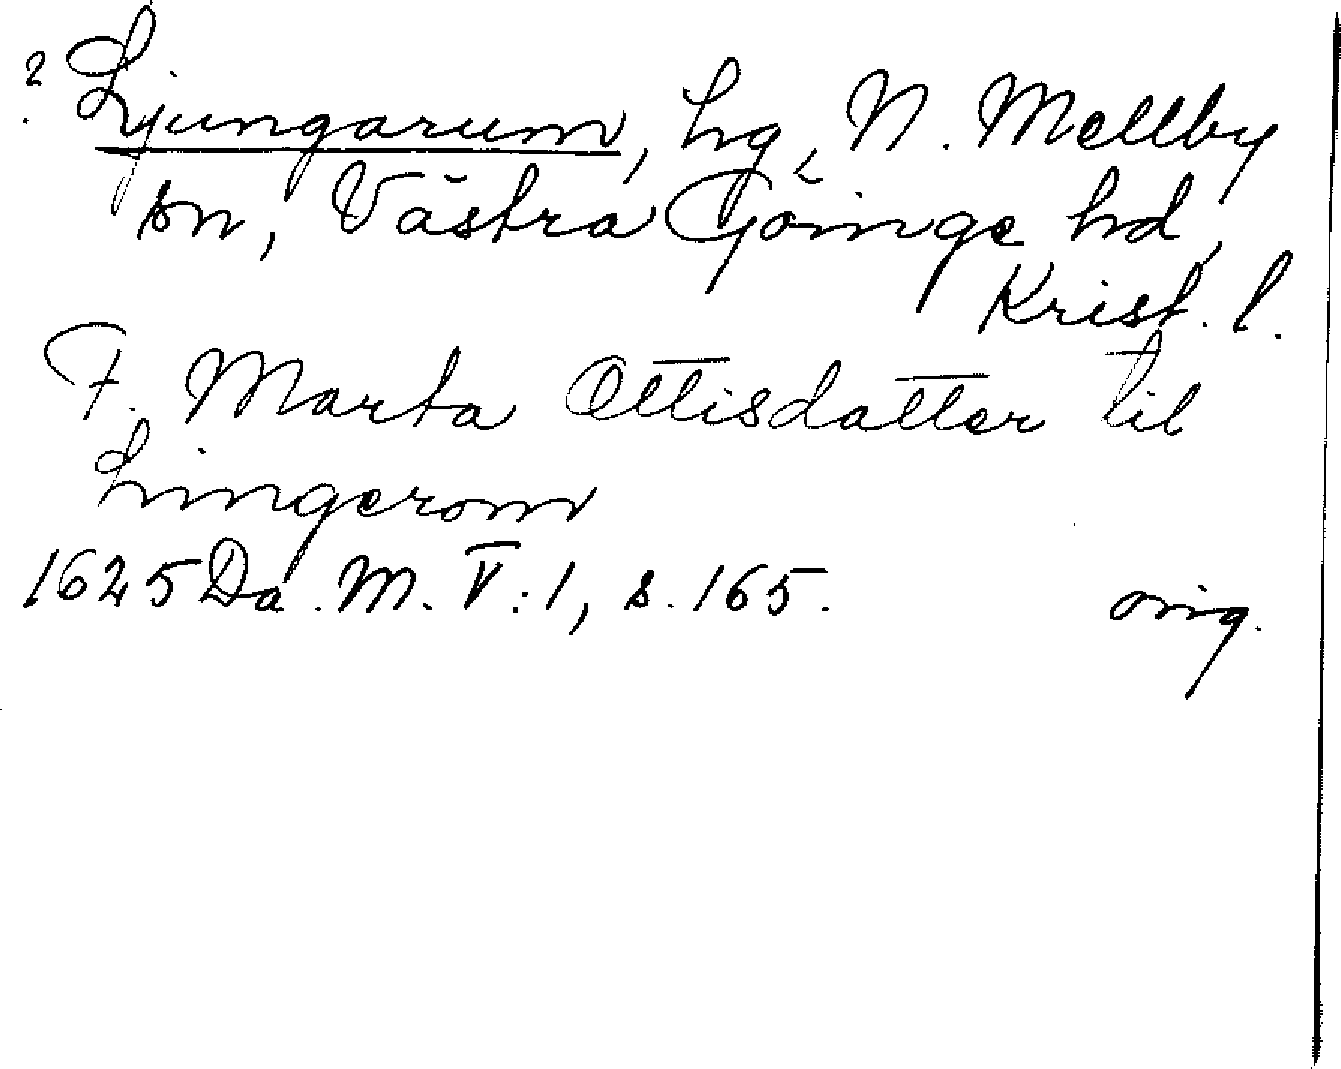 ? Ljungarum, hg, N. Mellby
sn, Västra Göinge hd,
Krist. l.
F. Marta Ottisdatter til
Lingerom
1625 Da. M. V:1, s. 165. orig.